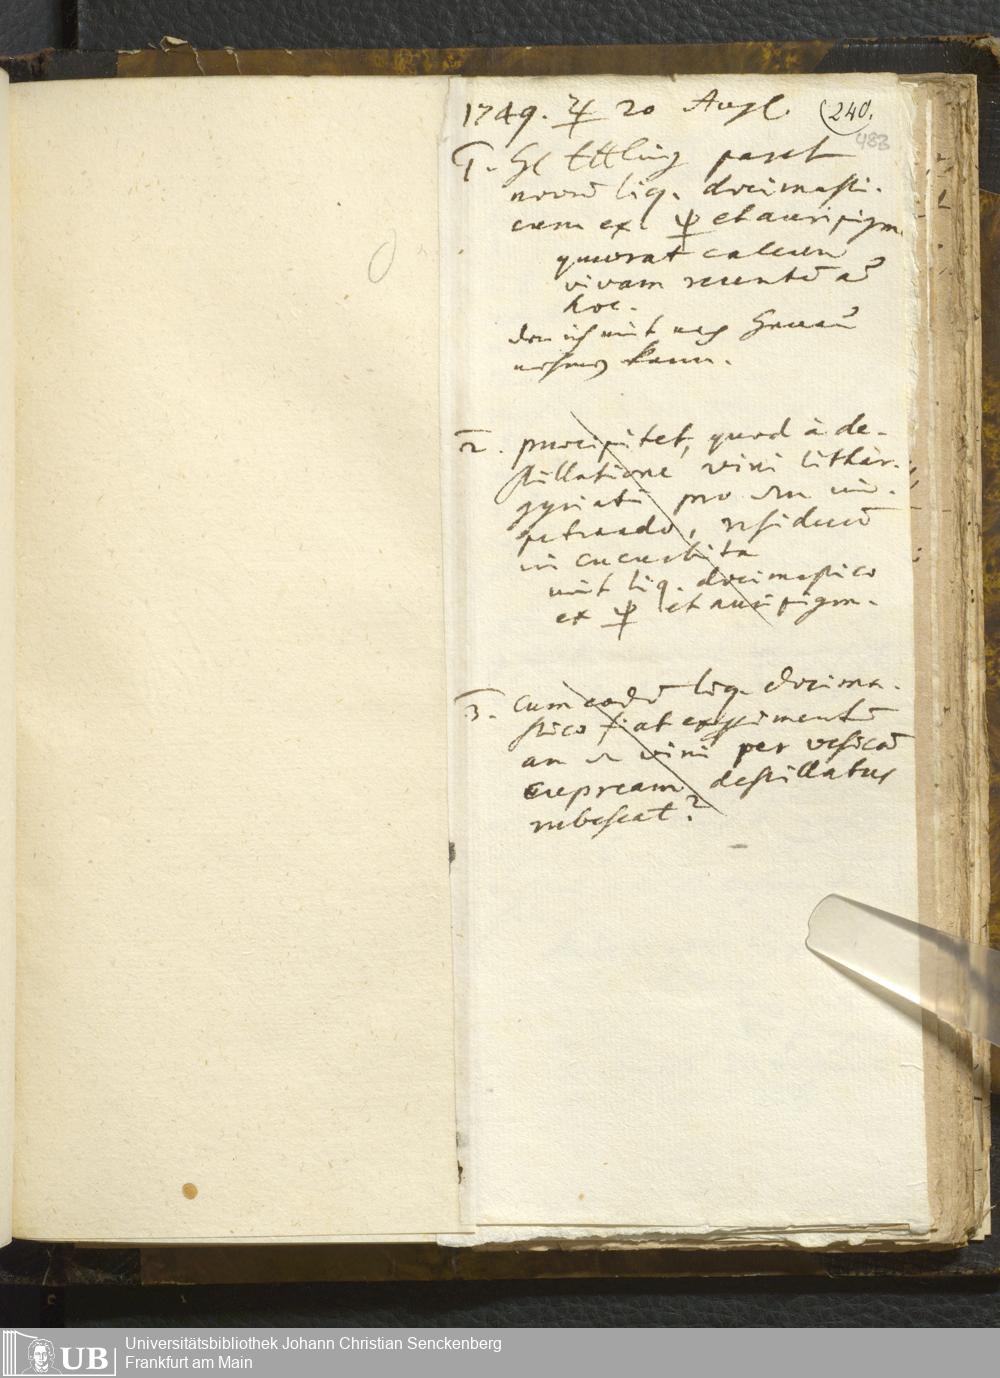 1749. ♃ 20 Aug.
(240.
483
1. H Ettling paret
novū liq. docimasti-
cum ex 🜿 et auripigm.
quaerat calcem
vivam recentē ad
hoc.
den ich mit nach
nehmen kann.
2. praecipitet, quod à de-
stillatione vini lithar-
gyriati pro vin
, residuū
in cucurbita
mit liq. docimastico
ex 🜿 et auripigm.
3. Cum eodē liq. docima-
stico fiat experimentū
an vini per vesicā
cupream destillatus
rubescat?
UB
Universitätsbibliothek Johann Christian Senckenberg
Frankfurt am Main